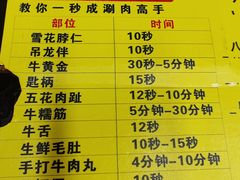 教你一秒成涮肉高手
部位 时间
雪花脖仁 10秒
吊龙伴 10秒
牛黄金 30秒-5分钟
匙柄 15秒
五花肉趾 12秒-15秒
牛糯筋 5分钟-30分钟
牛舌 12秒
生鲜毛肚 10秒-15秒
手打牛肉丸 4分钟-10分钟